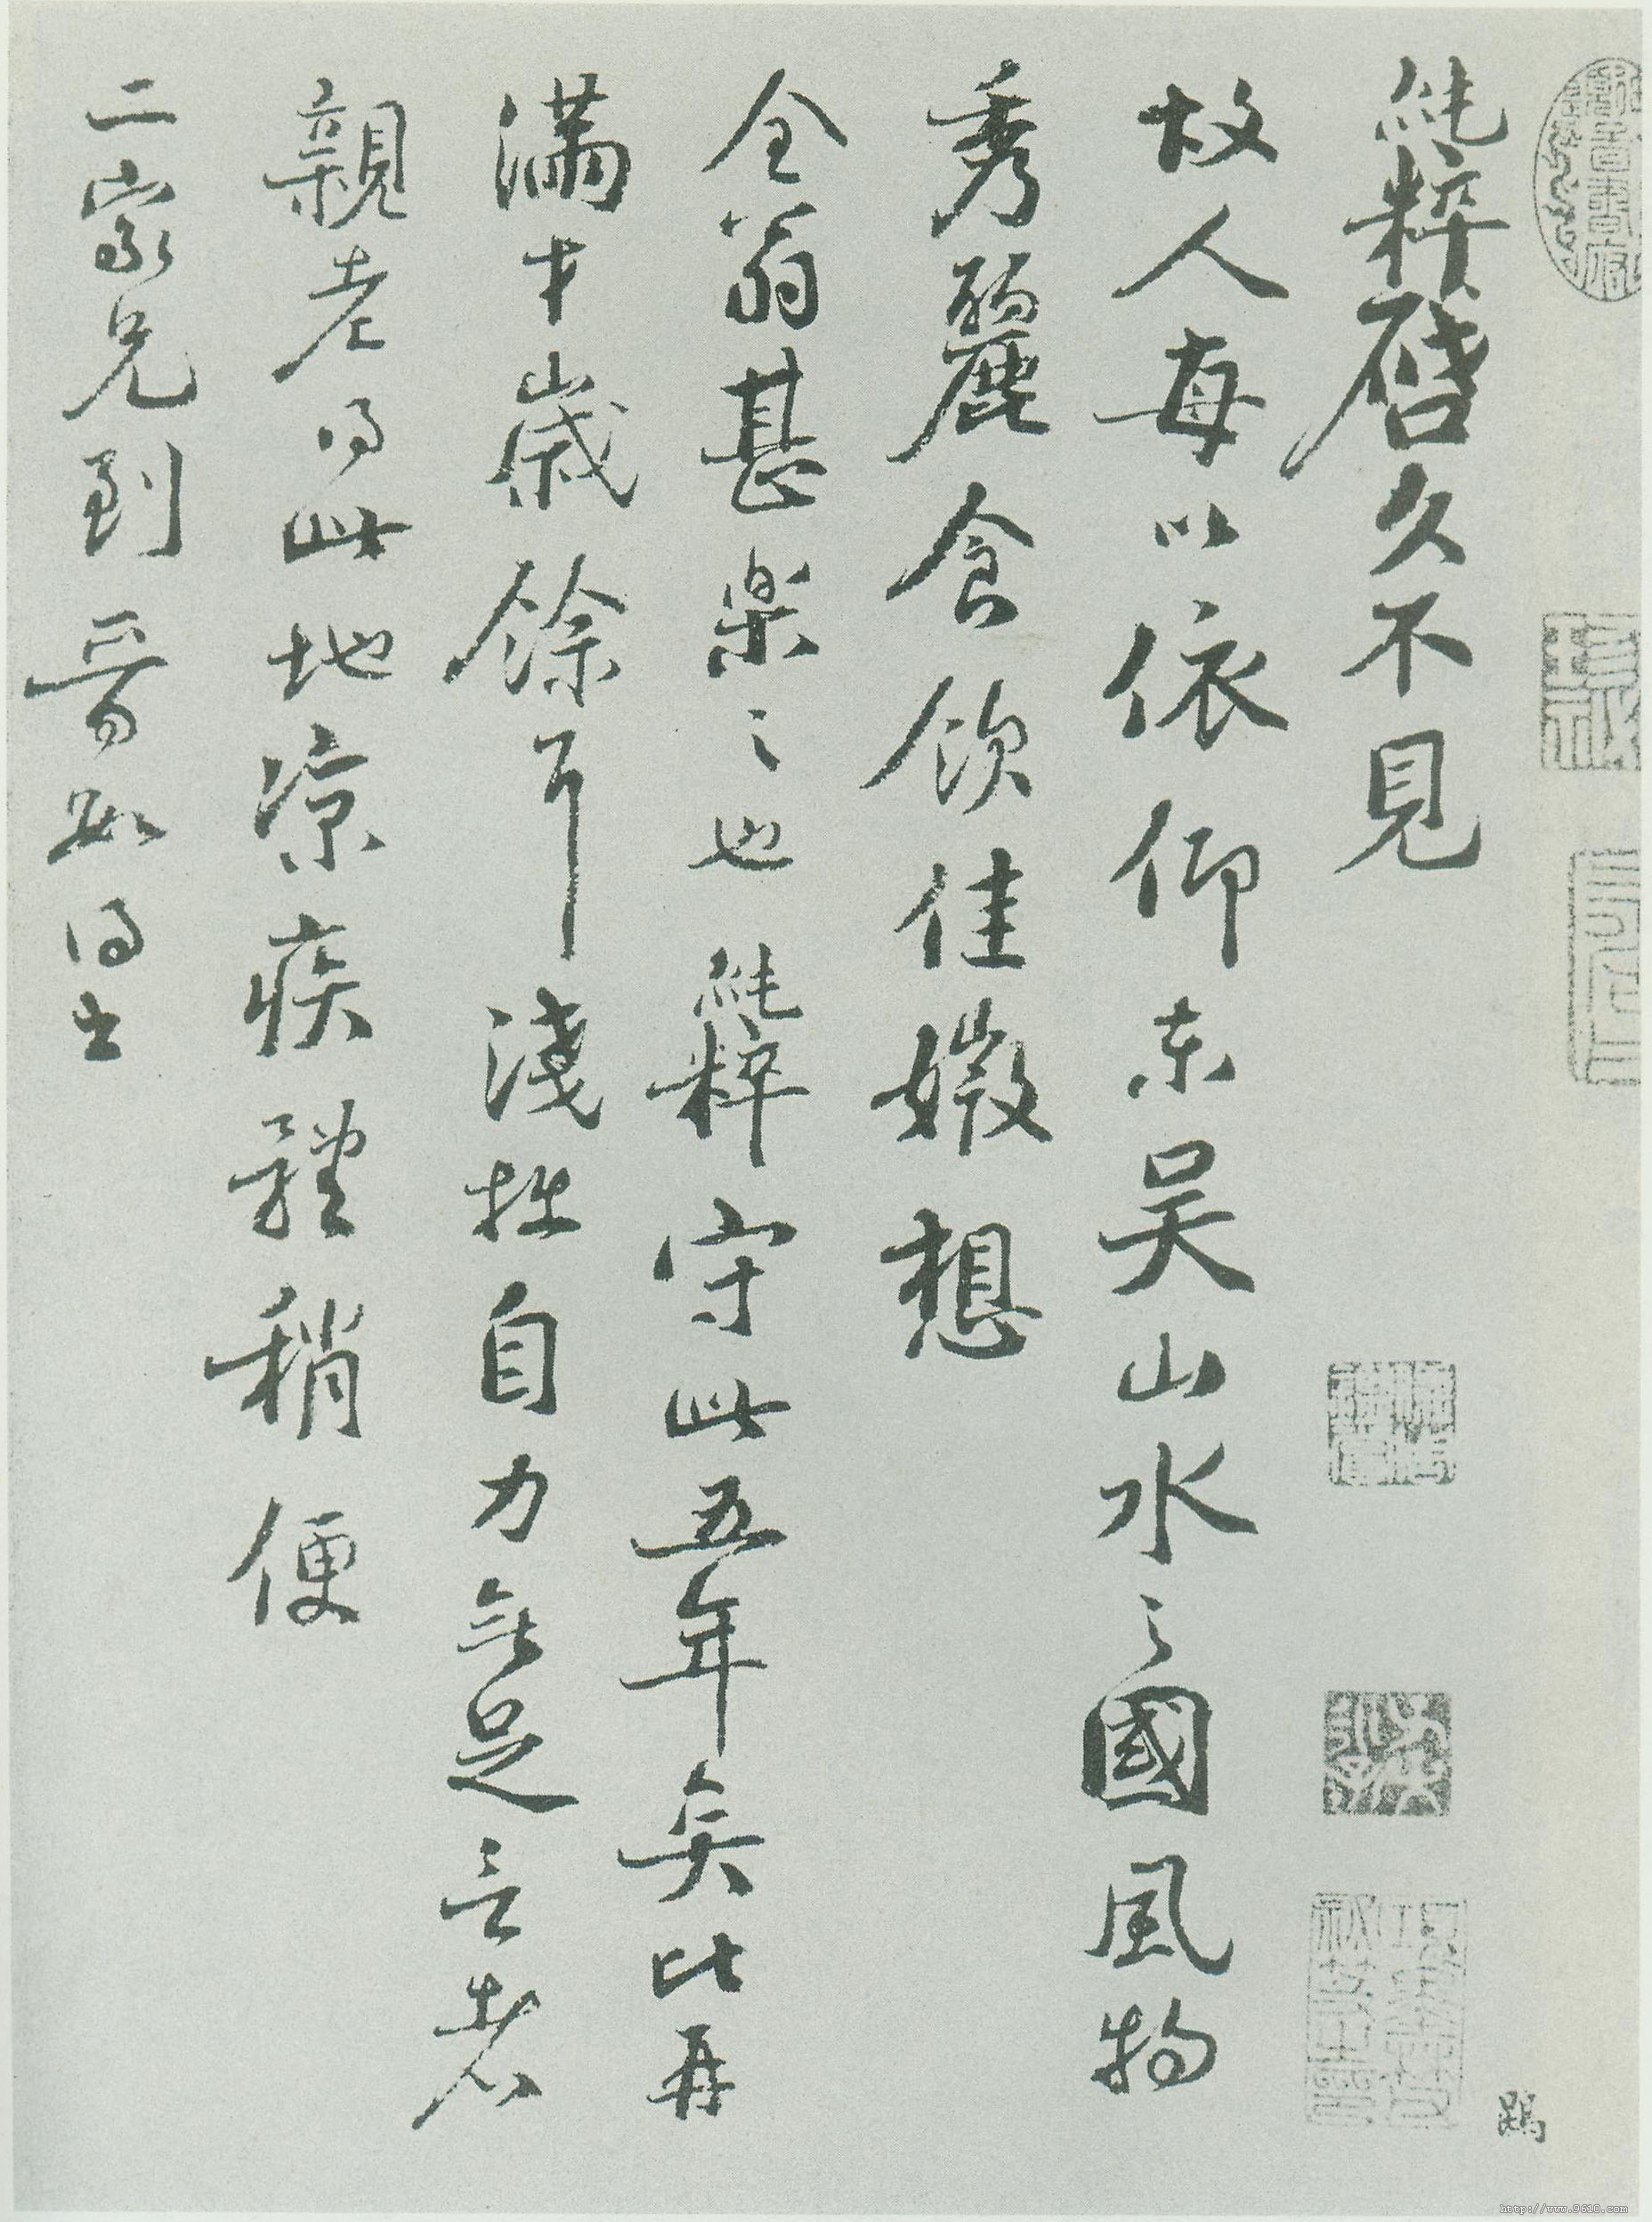 純粹啓久不見
故人每以依仰東吳山水之國風物
秀麗食飲佳媺想
仝翁甚樂之也純粹守此五年矣比再
滿才歲餘耳淺拙自力無足言者
親老得此地涼疾體稍便
二家兄到晉如得出
鵾
http://www.9610.com